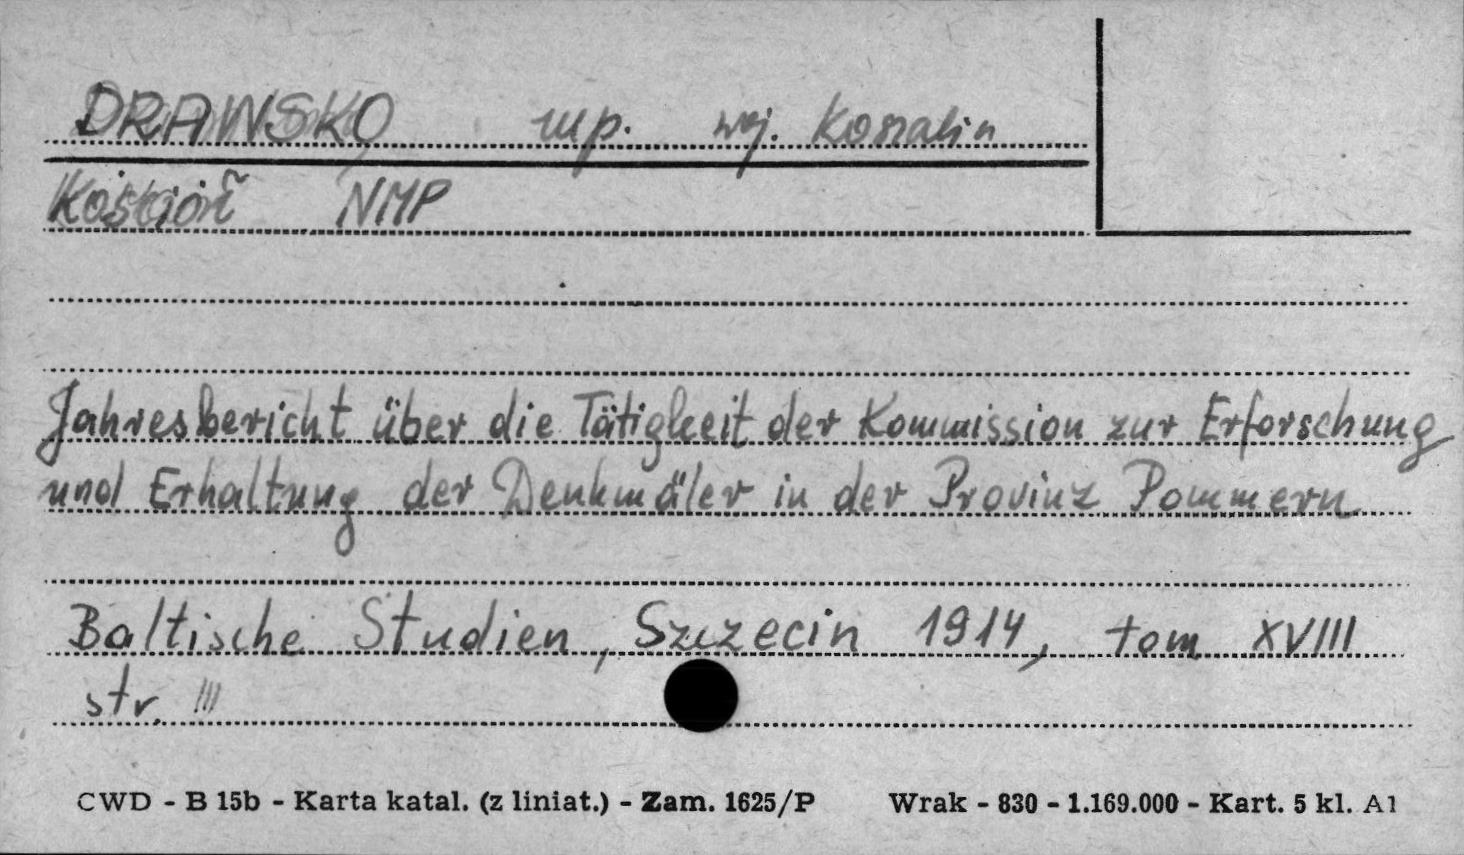 DRAWSKO mp. woj. Koszalin
Kościół NMP
Jahresbericht über die Tätigkeit der Kommission zur Erforschung
und Erhaltung der Denkmäler in der Provinz Pommern
Baltische Studien, Szczecin 1914, tom XVIII
str. III
CWD - B 15b - Karta katal. (z liniat.) - Zam. 1625/P Wrak - 830 - 1.169.000 - Kart. 5 kl. A1